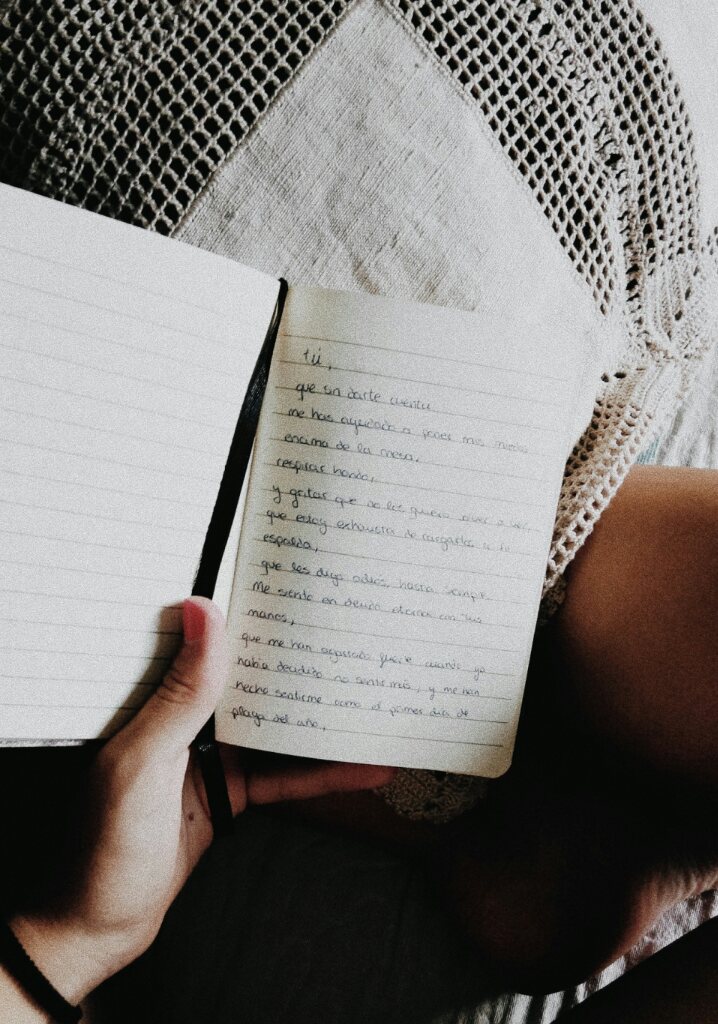 tú,
que sin darte cuenta
me has ayudado a poner mis miedos
encima de la mesa,
respirar hondo,
y gritar que no los quiero volver a ver,
que estoy exhausta de cargarlos a la
espalda,
que les digo adiós, hasta siempre.
Me siento en deuda eterna con tus
manos,
que me han agarrado fuerte cuando yo
había decidido no sentir más, y me han
hecho sentirme como el primer día de
playa del año,